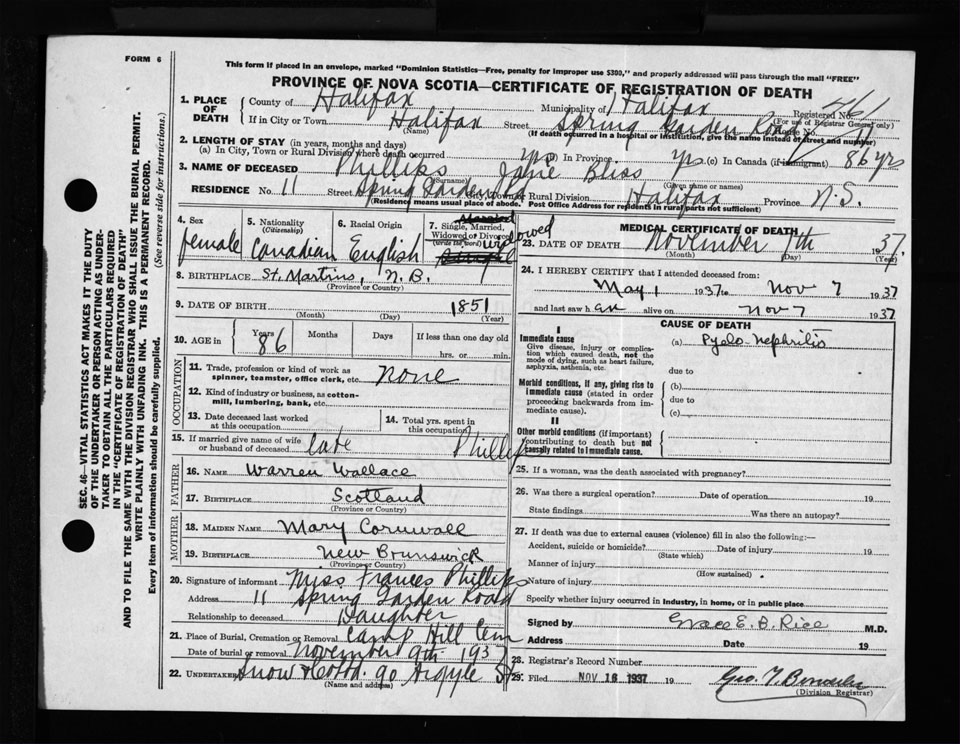 FORM 6
This form if placed in an envelope, marked "Dominion Statistics—Free, penalty for improper use $300," and properly addressed will pass through the mail "FREE"
PROVINCE OF NOVA SCOTIA—CERTIFICATE OF REGISTRATION OF DEATH
SEC. 46—VITAL STATISTICS ACT MAKES IT THE DUTY
OF THE UNDERTAKER OR PERSON ACTING AS UNDER-
TAKER TO OBTAIN ALL THE PARTICULARS REQUIRED
IN THE "CERTIFICATE OF REGISTRATION OF DEATH"
AND TO FILE THE SAME WITH THE DIVISION REGISTRAR WHO SHALL ISSUE THE BURIAL PERMIT.
WRITE PLAINLY WITH UNFADING INK. THIS IS A PERMANENT RECORD.
Every item of information should be carefully supplied. (See reverse side for instructions.)
1. PLACE OF DEATH County of Halifax Municipality of Halifax Registered No.
(For use of Registrar General only)
If in City or Town Halifax Street Spring Garden Road No. 11
(Name) (If death occurred in a hospital or institution, give the name instead of street and number)
2. LENGTH OF STAY (in years, months and days)
(a) In City, Town or Rural Division where death occurred yrs (b) In Province yrs (c) In Canada (if immigrant) 86 yrs
3. NAME OF DECEASED Phillips Jane Bliss
(Surname) (Given name or names)
RESIDENCE No. 11 Street Spring Garden Rd City, Town or Rural Division Halifax Province N.S.
(Residence means usual place of abode. Post Office Address for residents in rural parts not sufficient)
4. Sex female
5. Nationality (Citizenship) Canadian
6. Racial Origin English
7. Single, Married, Widowed or Divorced (Write the word) widowed
8. BIRTHPLACE St. Martins, N.B.
(Province or Country)
9. DATE OF BIRTH 1851
(Month) (Day) (Year)
10. AGE in Years 86 Months Days If less than one day old
hrs. or min.
OCCUPATION
11. Trade, profession or kind of work as spinner, teamster, office clerk, etc. none
12. Kind of industry or business, as cotton-mill, lumbering, bank, etc.
13. Date deceased last worked at this occupation
14. Total yrs. spent in this occupation
15. If married give name of wife or husband of deceased late Phillips
FATHER
16. NAME Warren Wallace
17. BIRTHPLACE Scotland
(Province or Country)
MOTHER
18. MAIDEN NAME Mary Cornwall
19. BIRTHPLACE New Brunswick
(Province or Country)
20. Signature of informant Miss Frances Phillips
Address 11 Spring Garden Road
Relationship to deceased Daughter
21. Place of Burial, Cremation or Removal Camp Hill Cem
Date of burial or removal November 9th 1937
22. UNDERTAKER Snow & Co Ltd. 90 Argyle St
(Name and address)
MEDICAL CERTIFICATE OF DEATH
23. DATE OF DEATH November 7th 1937
(Month) (Day) (Year)
24. I HEREBY CERTIFY that I attended deceased from:
May 1 1937 to Nov 7 1937
and last saw h er alive on Nov 7 1937
CAUSE OF DEATH
I
Immediate cause
Give disease, injury or complication which caused death, not the mode of dying, such as heart failure, asphyxia, asthenia, etc.
(a) Pyelo-nephritis
due to
Morbid conditions, if any, giving rise to immediate cause (stated in order proceeding backwards from immediate cause).
(b)
due to
(c)
II
Other morbid conditions (if important) contributing to death but not causally related to immediate cause.
25. If a woman, was the death associated with pregnancy?
26. Was there a surgical operation? Date of operation 19
State findings Was there an autopsy?
27. If death was due to external causes (violence) fill in also the following:—
Accident, suicide or homicide? Date of injury 19
(State which)
Manner of injury
(How sustained)
Nature of injury
Specify whether injury occurred in industry, in home, or in public place
Signed by Grace E. B. Rice M.D.
Address Date 19
28. Registrar's Record Number
29. Filed NOV 16 1937 19
(Division Registrar)